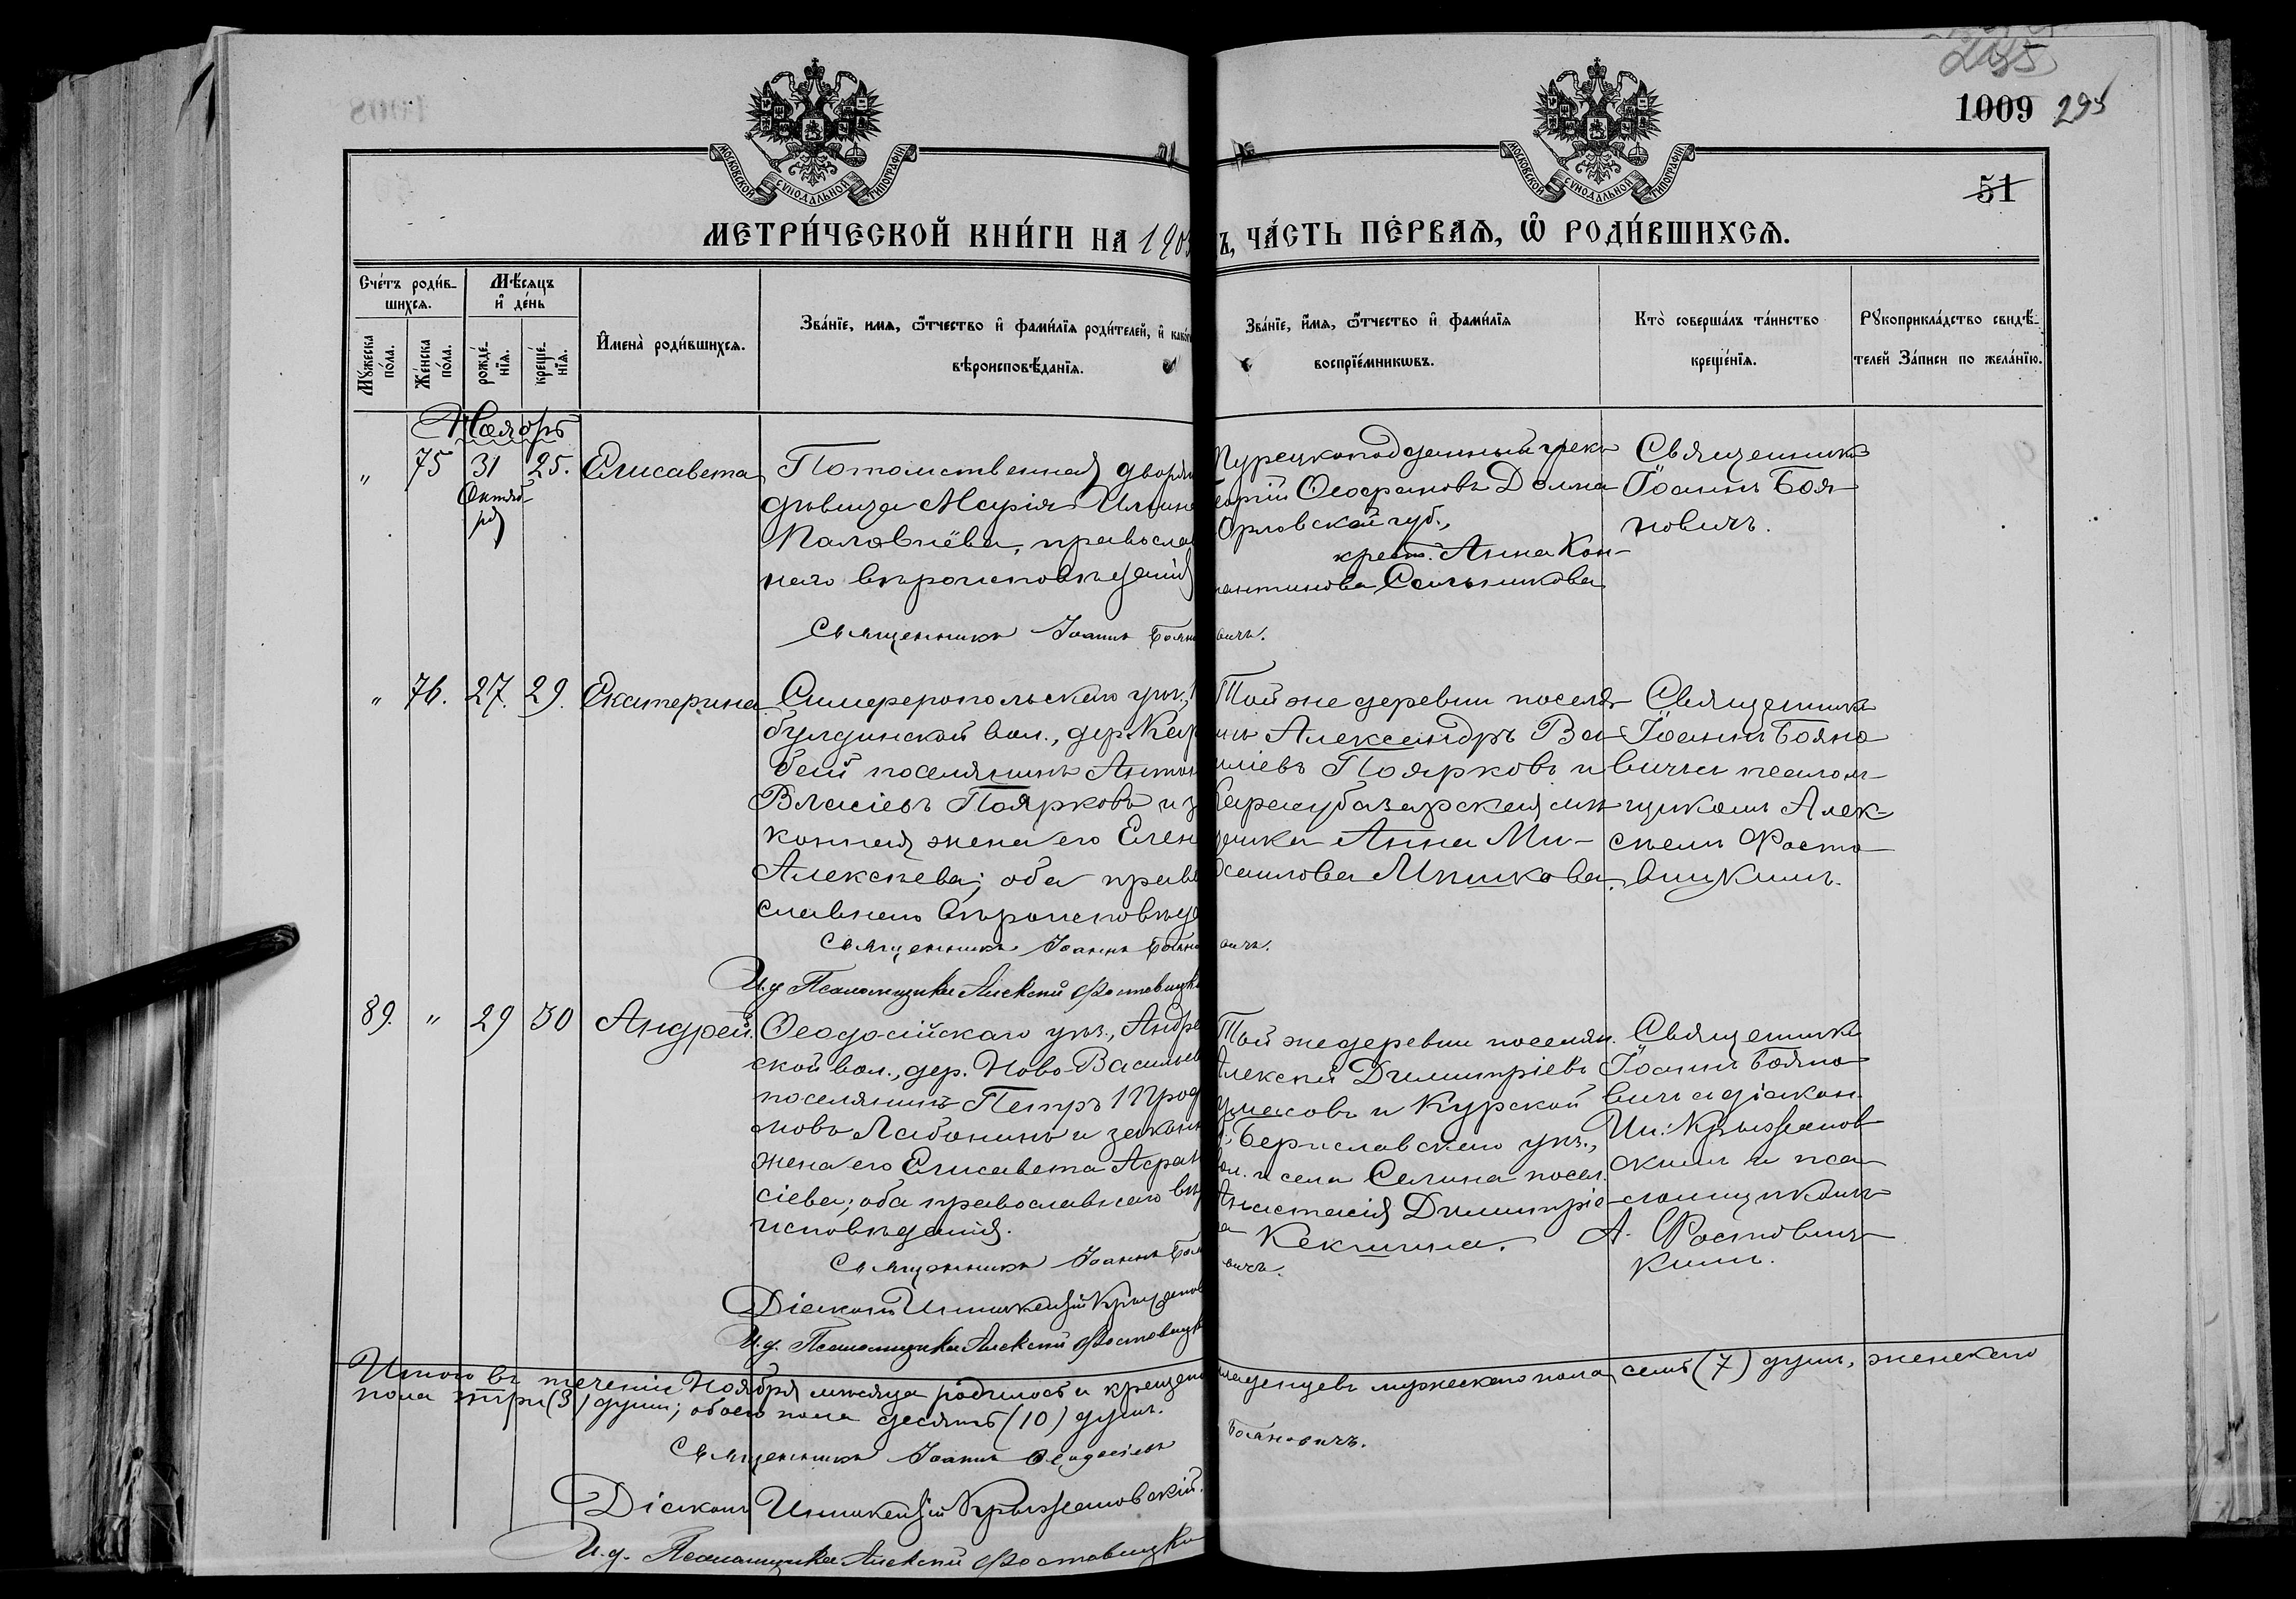 295
1009 295
МОСКОВСКОЙ СѴНОДАЛЬНОЙ ТИПОГРАФІИ
МОСКОВСКОЙ СѴНОДАЛЬНОЙ ТИПОГРАФІИ
51
МЕТРИ́ЧЕСКОЙ КНИ́ГИ НА 190
Ъ, ЧА́СТЬ ПЕ́РВАѦ, Ѡ҆ РОДИ́ВШИХСѦ.
Сче́тъ роди́в-
шихсѧ.
Мѣ́сѧцъ
и҆ де́нь
Мꙋ́жеска по́ла.
Же́нска по́ла.
рожде́-
нїѧ.
креще́-
нїѧ.
И҆мена̀ роди́вшихсѧ.
Зва́нїе, имѧ, ѻ҆́тчество и҆ фами́лїѧ роди́телей, и҆ како́
вѣроисповѣ́данїѧ.
Зва́нїе, и҆́мѧ, ѻ҆́тчество и҆ фами́лїѧ
воспрїе́мникѡвъ.
Кто̀ соверша́лъ та́инство
креще́нїѧ.
Рꙋкоприкла́дство свидѣ́-
телей За́писи по жела́нїю.
Ноябрь
" 75 31 25. Елисавета
Октяб-
ря
Потомственная дворян
дѣвица Марія Ильин
Паловнёва, правосла
наго вѣроисповѣданія
Священникъ Іоаннъ Боян
Турецкоподданный грекъ
еоргій Ѳеофановъ Долма
Орловской губ.,
крест. Анна Кон-
антинова Сальникова
овичъ.
Священникъ
Іоаннъ Боя-
новичъ.
" 76. 27. 29. Екатерина
Симферопольскаго уѣз.,
булдинской вол., дер. Кар
бай поселянинъ Антон
Власіевъ Поярковъ и за
конная жена его Елен
Алексѣева; оба право
славнаго вѣроисповѣда
Священникъ Іоаннъ Боян
И.д. Псаломщика Алексѣй Фостовицк
Той же деревни поселя-
инъ Александръ Ва-
иліевъ Поярковъ и
Карасубазарская мѣ-
щанка Анна Ми-
хаилова Мишкова.
овичъ.
Священникъ
Іоаннъ Бояно-
вичъ съ псалом-
щикомъ Алек-
сѣемъ Фосто-
вицкимъ.
89. " 29 30 Андрей.
Ѳеодосійскаго уѣз., Андре
ской вол., дер. Ново-Васильев
поселянинъ Петръ Прод
мовъ Лабонинъ и законн
жена его Елисавета Аѳана
сіева; оба православнаго вѣр
исповѣданія.
Священникъ Іоаннъ Боя
Діаконъ Иннокентій Крыжанов
И.д. Псаломщика Алексѣй Фостовицк
Той же деревни поселян.
Алексѣй Димитріевъ
маковъ и Курской
Бериславскаго уѣз.,
ол. и села Салина посел.
Анастасія Димитріе-
а Кекшина.
вичъ.
Священникъ
Іоаннъ Бояно-
вичъ съ діакон.
Ин: Крыжанов-
скимъ и пса-
ломщикомъ
А. Фостовиц-
кимъ.
Итого въ теченіи Ноября мѣсяца родилось и крещено
младенцевъ мужескаго пола семь (7) душъ, женскаго
пола три (3) души; обоего пола десять (10) душъ.
Священникъ Іоаннъ Ѳеодосіевъ
Бояновичъ.
Діаконъ Иннокентій Крыжановскій.
И.д. Псаломщика Алексѣй Фостовицкі